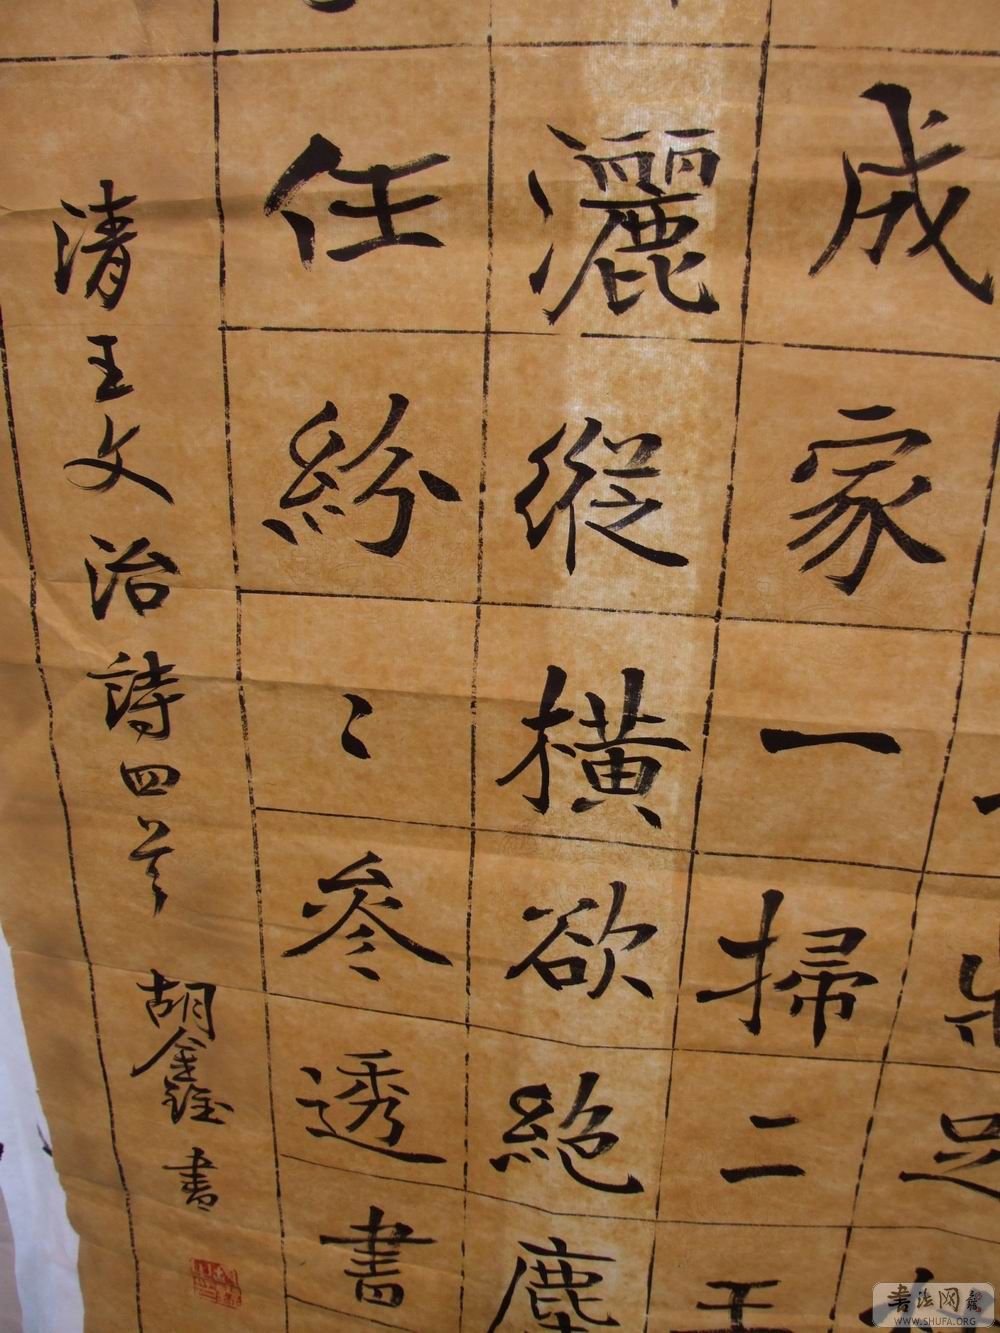 足
成家一掃二王
灑縱橫欲絕塵
任紛〻參透書
清王文治詩四首 胡鑫銓書
書法网
WWW.SHUFA.ORG